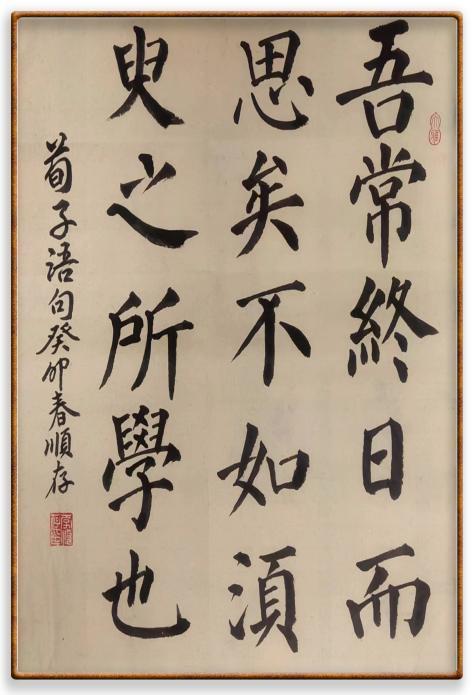 吾常終日而
思矣不如須
臾之所學也
荀子語句癸卯春順存